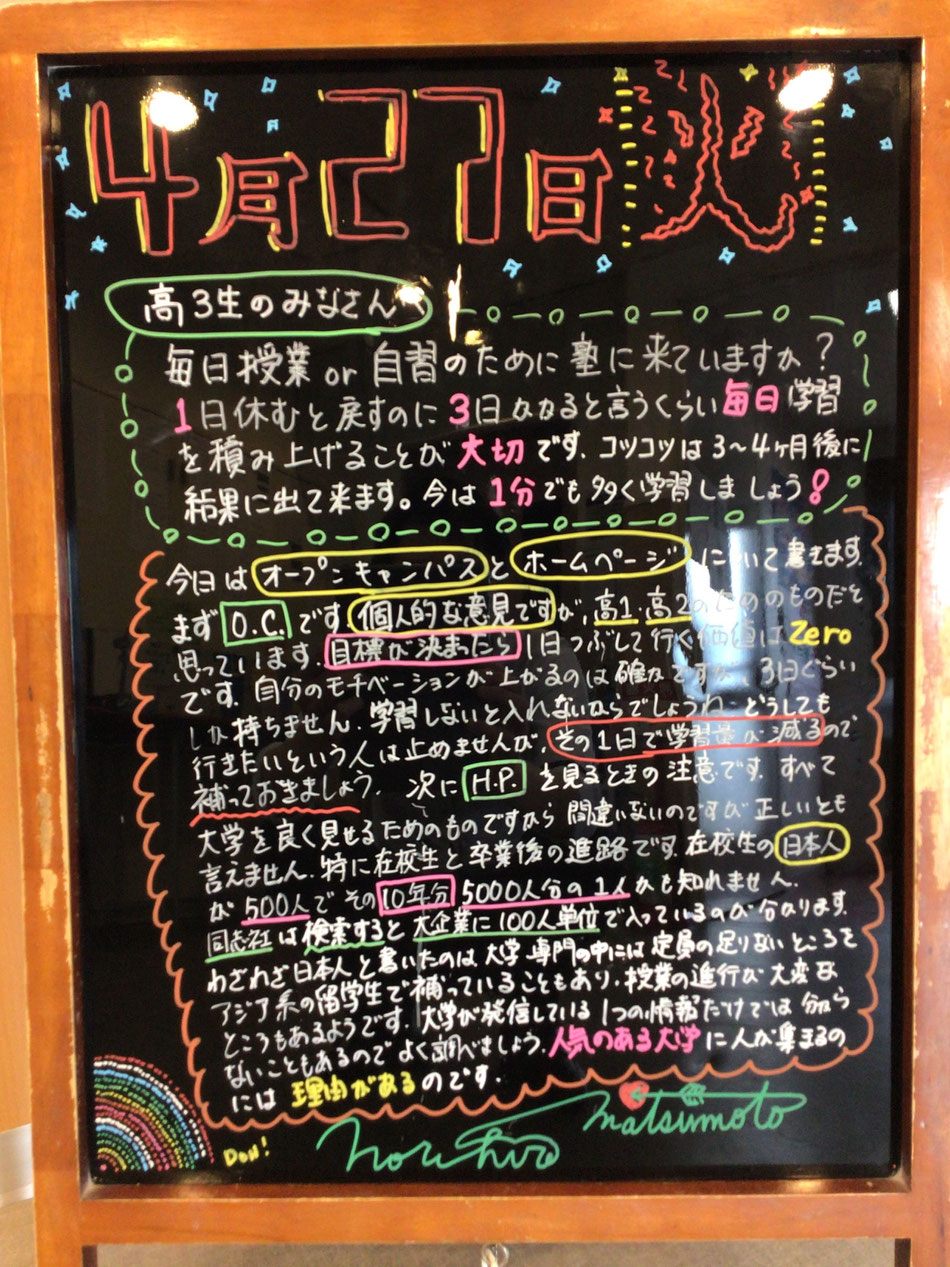 4月27日 火
高3生のみなさんへ
毎日授業 or 自習のために塾に来ていますか?
1日休むと戻すのに3日かかると言うくらい毎日学習
を積み上げることが大切です. コツコツは3〜4ヶ月後に
結果に出て来ます。今は1分でも多く学習しましょう!
今日はオープンキャンパスとホームページについて書きます.
まずO.C.です. 個人的な意見ですが, 高1·高2のためのものだと
思っています. 目標が決まったら1日つぶして行く価値はZero
です. 自分のモチベーションが上がるのは確かですが, 3日ぐらい
しか持ちません. 学習しないと入れないからでしょうね. どうしても
行きたいという人は止めませんが, その1日で学習量が減るので
補っておきましょう. 次にH.P.を見るときの注意です. すべて
大学を良く見せるためのものですから間違いないのですが正しいとも
言えません. 特に在校生と卒業後の進路です. 在校生の日本人
が500人でその10年分 5000人分の1人かも知れません.
同志社は検索すると大企業に100人単位で入っているのが分かります.
わざわざ日本人と書いたのは大学 専門の中には定員の足りないところを
アジア系の留学生で補っていることもあり, 授業の進行が大変な
ところもあるようです. 大学が発信している1つの情報だけでは分から
ないこともあるのでよく調べましょう. 人気のある大学に人が集まるの
には理由があるのです.
DON!
Norihiro Matsumoto